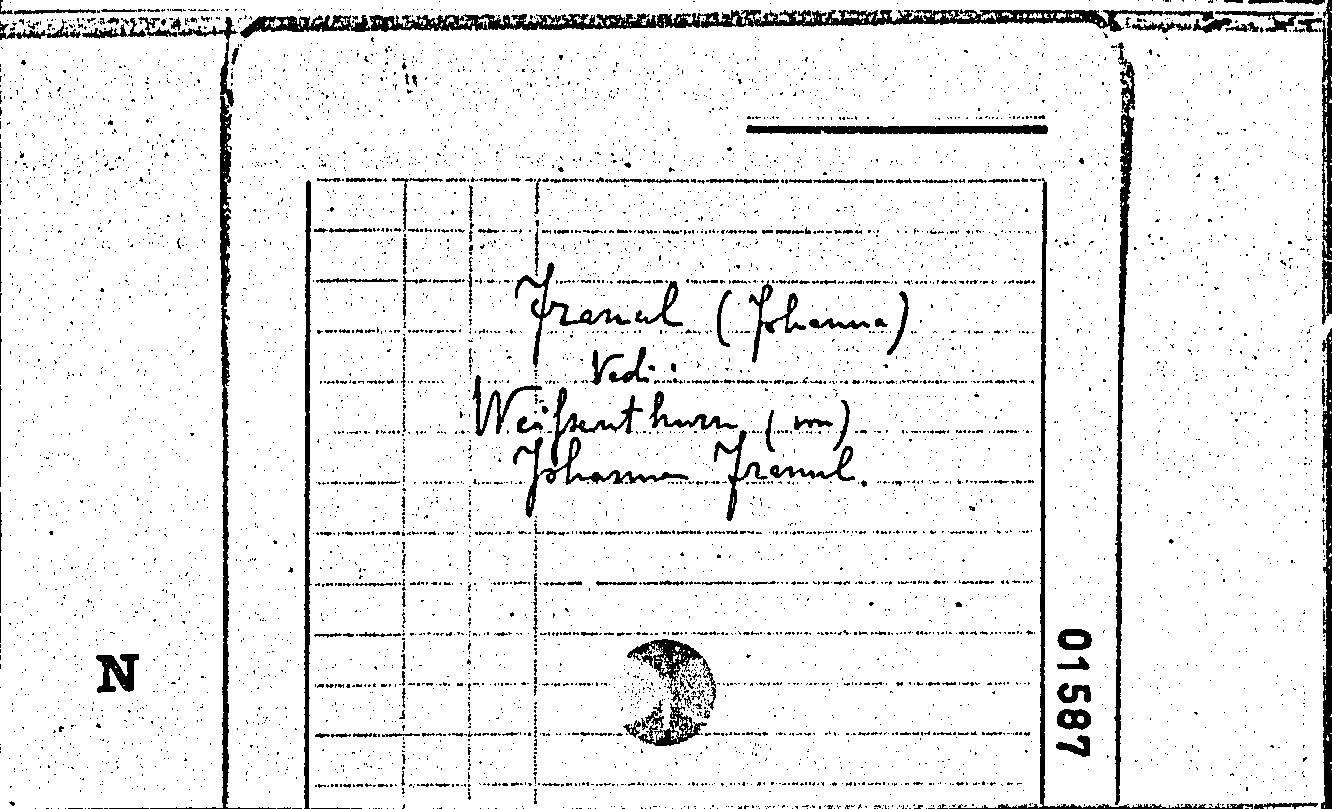 Franul (Johanna)
Vedi:
Weißenthurn (von)
Johanna Franul.
N
01587